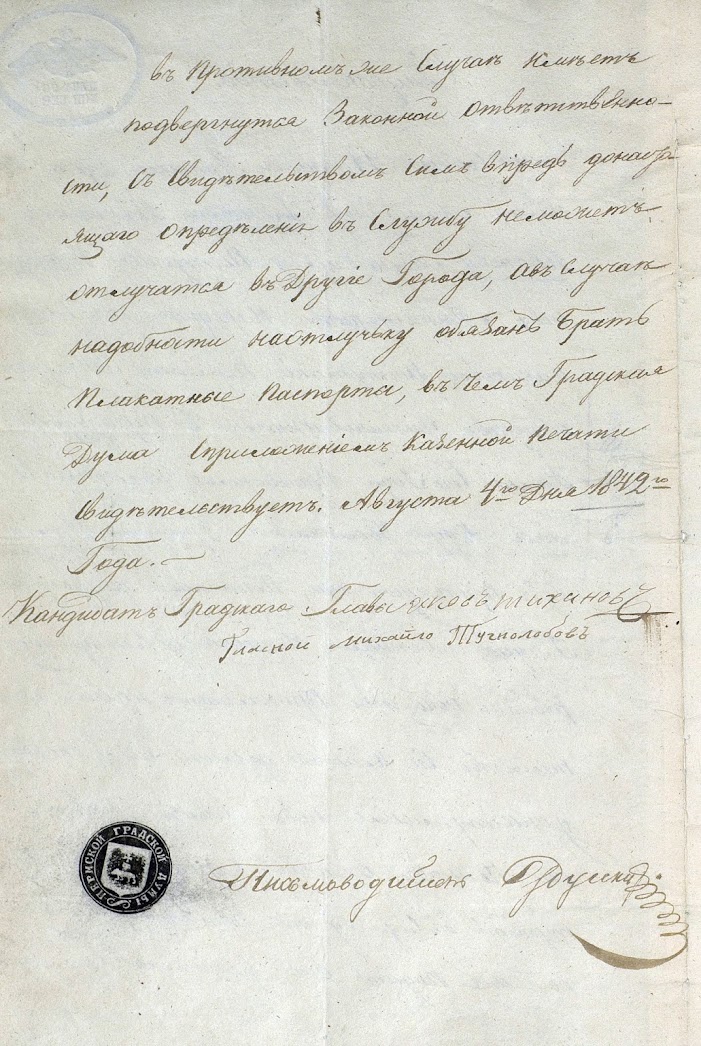 въ противномъ же Случаѣ имѣетъ
подвергнутся Законной отвѣтственно-
сти, съ Свидѣтельствомъ Симъ впредь донасто-
ящаго опредѣленія въ Службу неможетъ
отлучатся въ Другіе Города, авъ Случаѣ
надобности наотлучьку обязанъ Брать
Плакатные Паспорты, въ чемъ Градская
Дума Сприложеніемъ Казенной Печати
Свидѣтельствуетъ. Августа 4го Дня 1842го
Года.
Кандидатъ Градскаго Главы яковъ тихиновъ
Гласной михайло Тучнолобовъ
ПЕРМСКОЙ ГРАДСКОЙ ДУМЫ
Письмоводитель